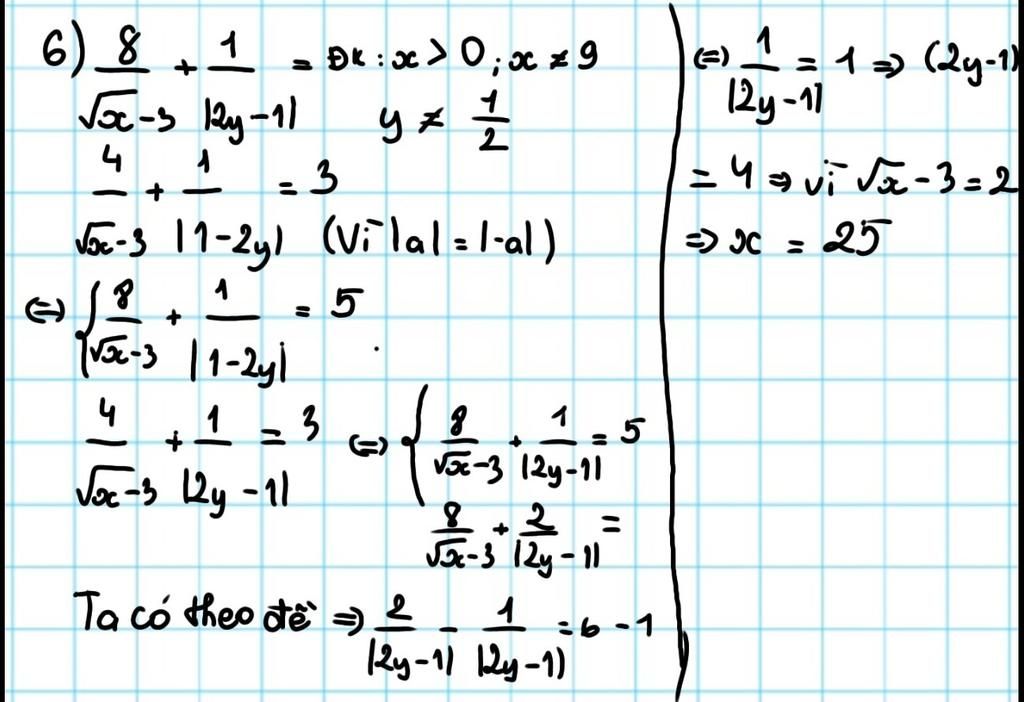 6) 8/(√x-3) + 1/|2y-1| = ĐK: x > 0; x ≠ 9
y ≠ 1/2
4/(√x-3) + 1/|1-2y| = 3
(Vì |a| = |-a|)
⇔ { 8/(√x-3) + 1/|1-2y| = 5
4/(√x-3) + 1/|2y-1| = 3
⇔ { 8/(√x-3) + 1/|2y-1| = 5
8/(√x-3) + 2/|2y-1| =
Ta có theo đề ⇒ 2/|2y-1| - 1/|2y-1) = 6 - 1
⇔ 1/|2y-1| = 1 ⇒ (2y-1)
= 4 ⇒ vì √x-3 = 2
⇒ x = 25